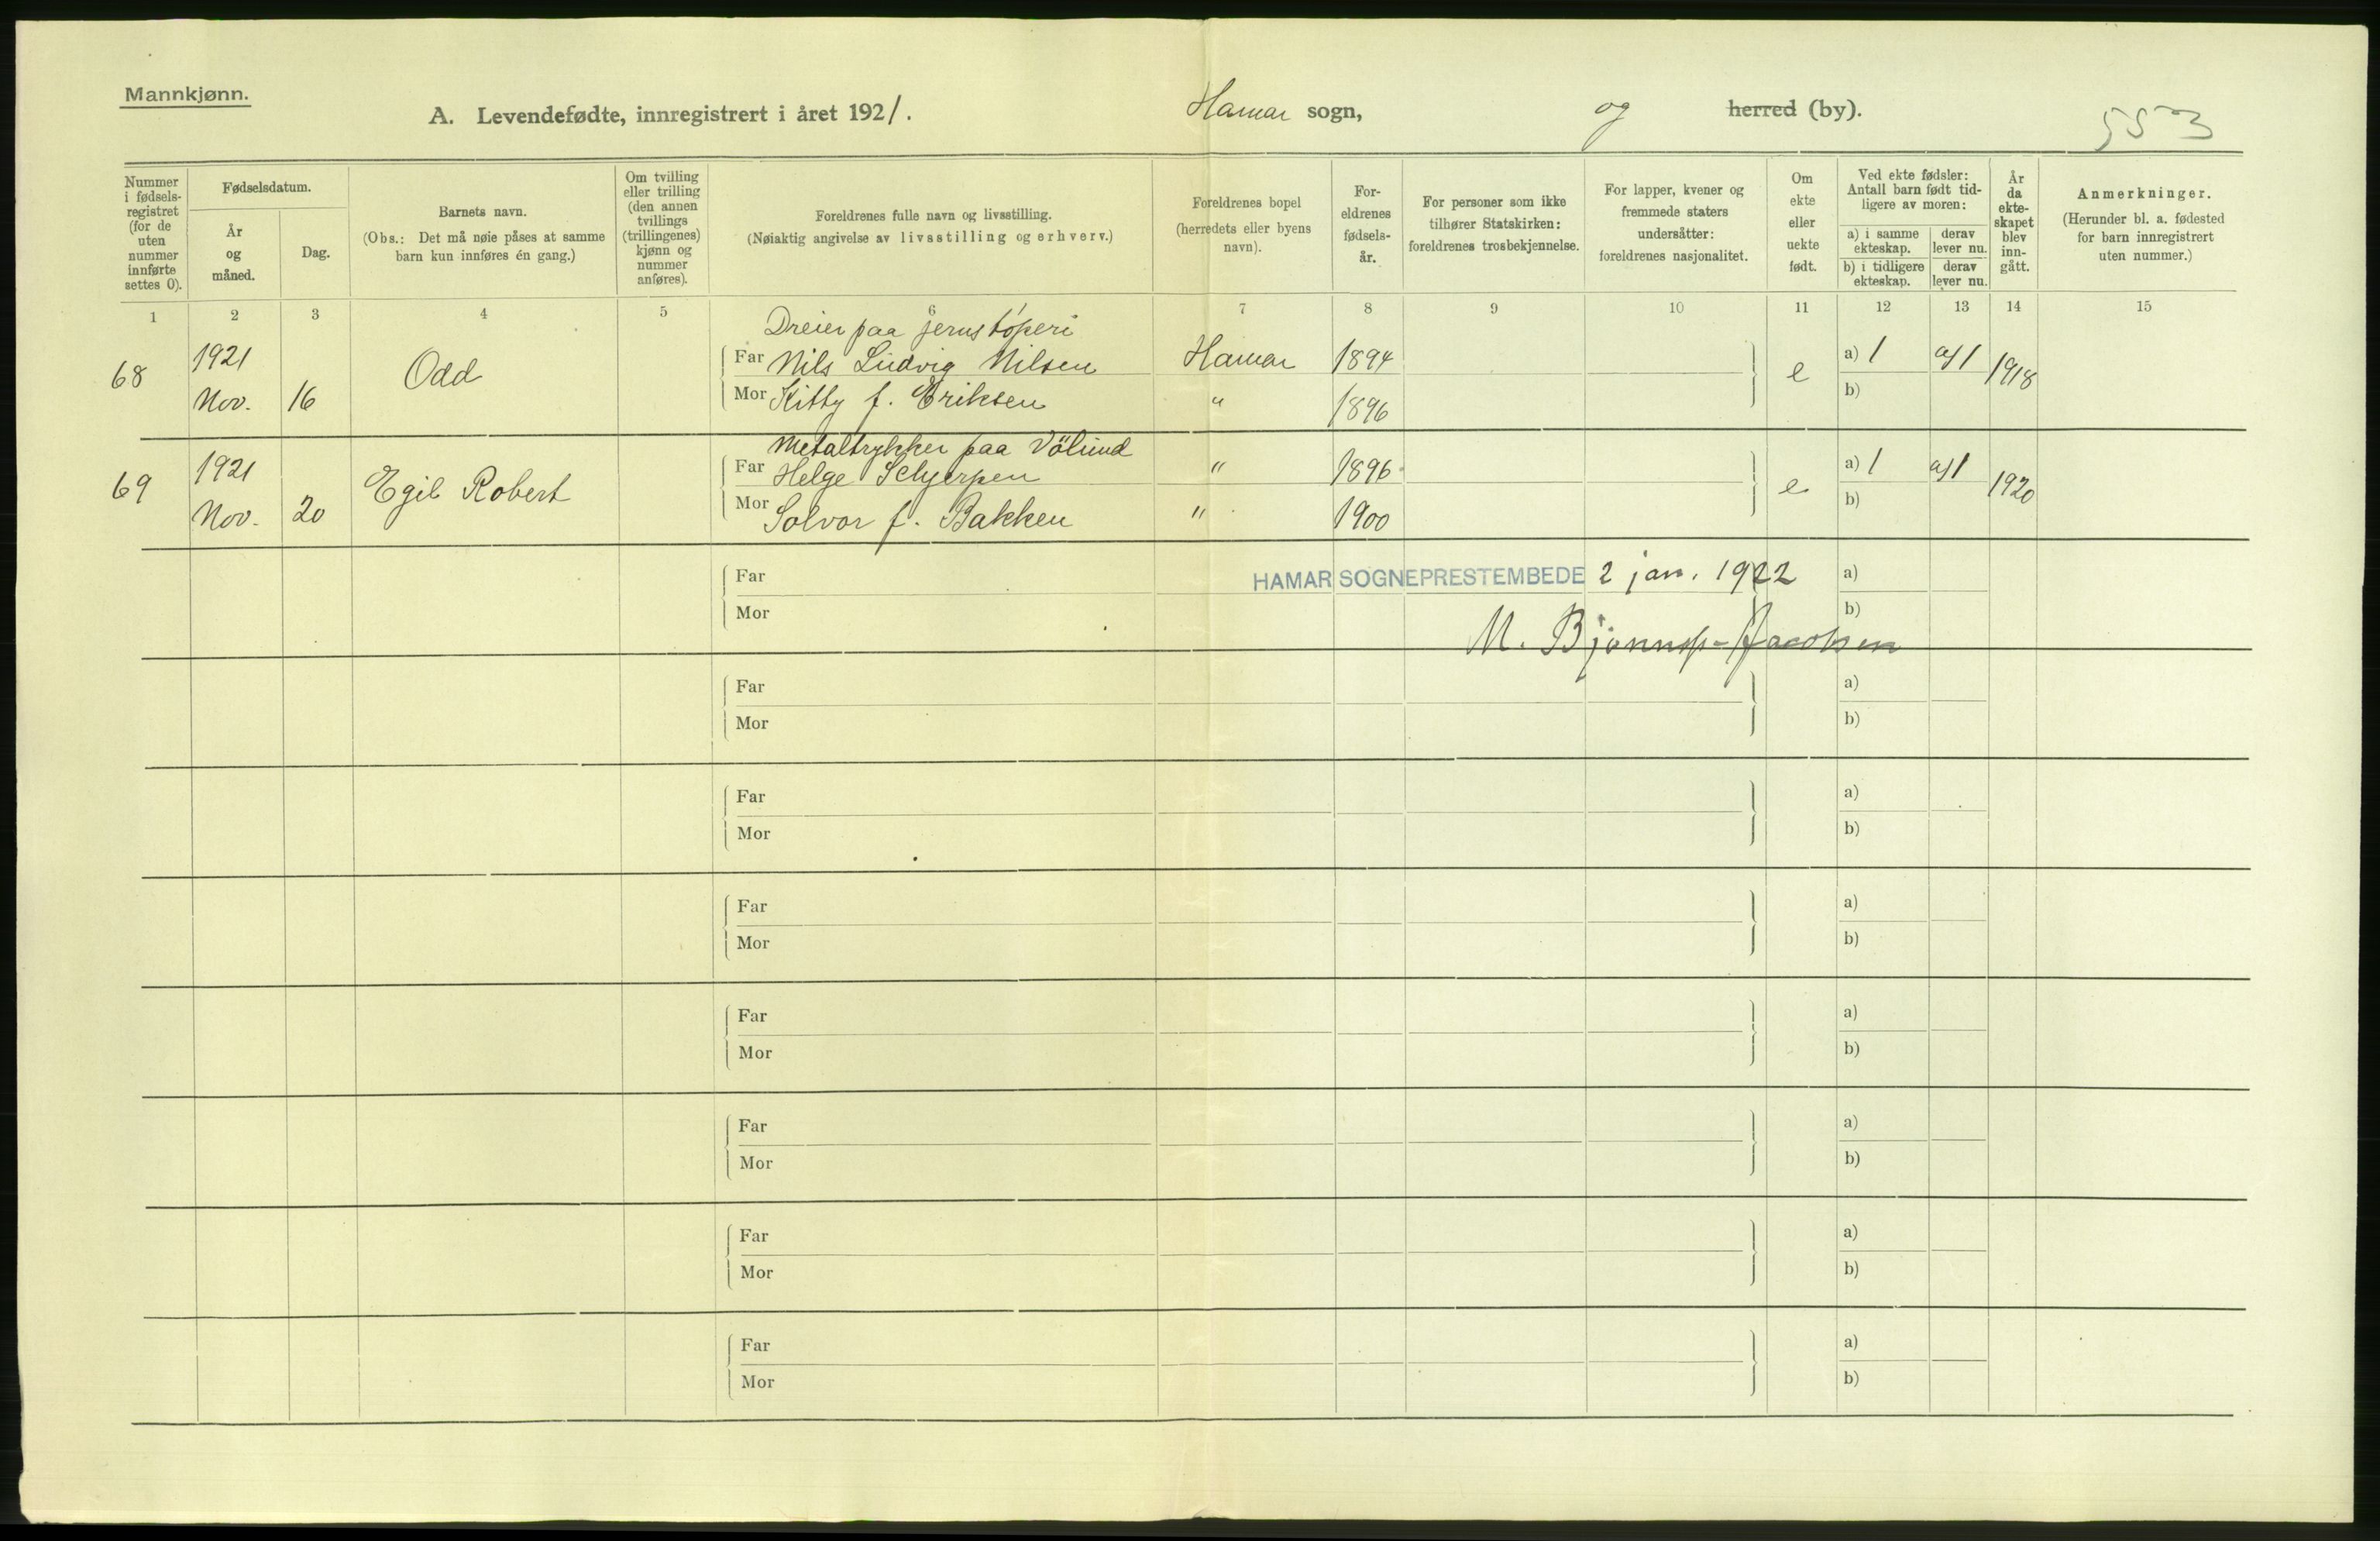 Mannkjønn.
A. Levendefødte, innregistrert i året 1921. Hamar sogn, og herred (by). 553
Nummer i fødsels-registret (for de uten nummer innførte settes 0).
Fødselsdatum.
År og måned.
Dag.
Barnets navn.
(Obs.: Det må nøie påses at samme barn kun innføres én gang.)
Om tvilling eller trilling (den annen tvillings (trillingenes) kjønn og nummer anføres).
Foreldrenes fulle navn og livsstilling.
(Nøiaktig angivelse av livsstilling og erhverv.)
Foreldrenes bopel (herredets eller byens navn).
For-eldrenes fødsels-år.
For personer som ikke tilhører Statskirken: foreldrenes trosbekjennelse.
For lapper, kvener og fremmede staters undersåtter: foreldrenes nasjonalitet.
Om ekte eller uekte født.
Ved ekte fødsler: Antall barn født tid-ligere av moren:
a) i samme ekteskap. derav lever nu.
b) i tidligere ekteskap. derav lever nu.
År da ekte-skapet blev inn-gått.
Anmerkninger.
(Herunder bl. a. fødested for barn innregistrert uten nummer.)
1 2 3 4 5 6 7 8 9 10 11 12 13 14 15
Dreier paa jernstøperi
68 1921 Odd Far Nils Ludvig Nilsen Hamar 1894 e a) 1 a) 1 1918
Nov. 16 Mor Kitty f. Eriksen " 1896 b)
Metaltrykker paa Völund
69 1921 Egil Robert Far Helge Schjerpen " 1896 e a) 1 a) 1 1920
Nov. 20 Mor Solvor f. Bakken " 1900 b)
Far HAMAR SOGNEPRESTEMBEDE 2 jan. 1922 a)
Mor b)
M. -Jacobsen
Far a)
Mor b)
Far a)
Mor b)
Far a)
Mor b)
Far a)
Mor b)
Far a)
Mor b)
Far a)
Mor b)
Far a)
Mor b)